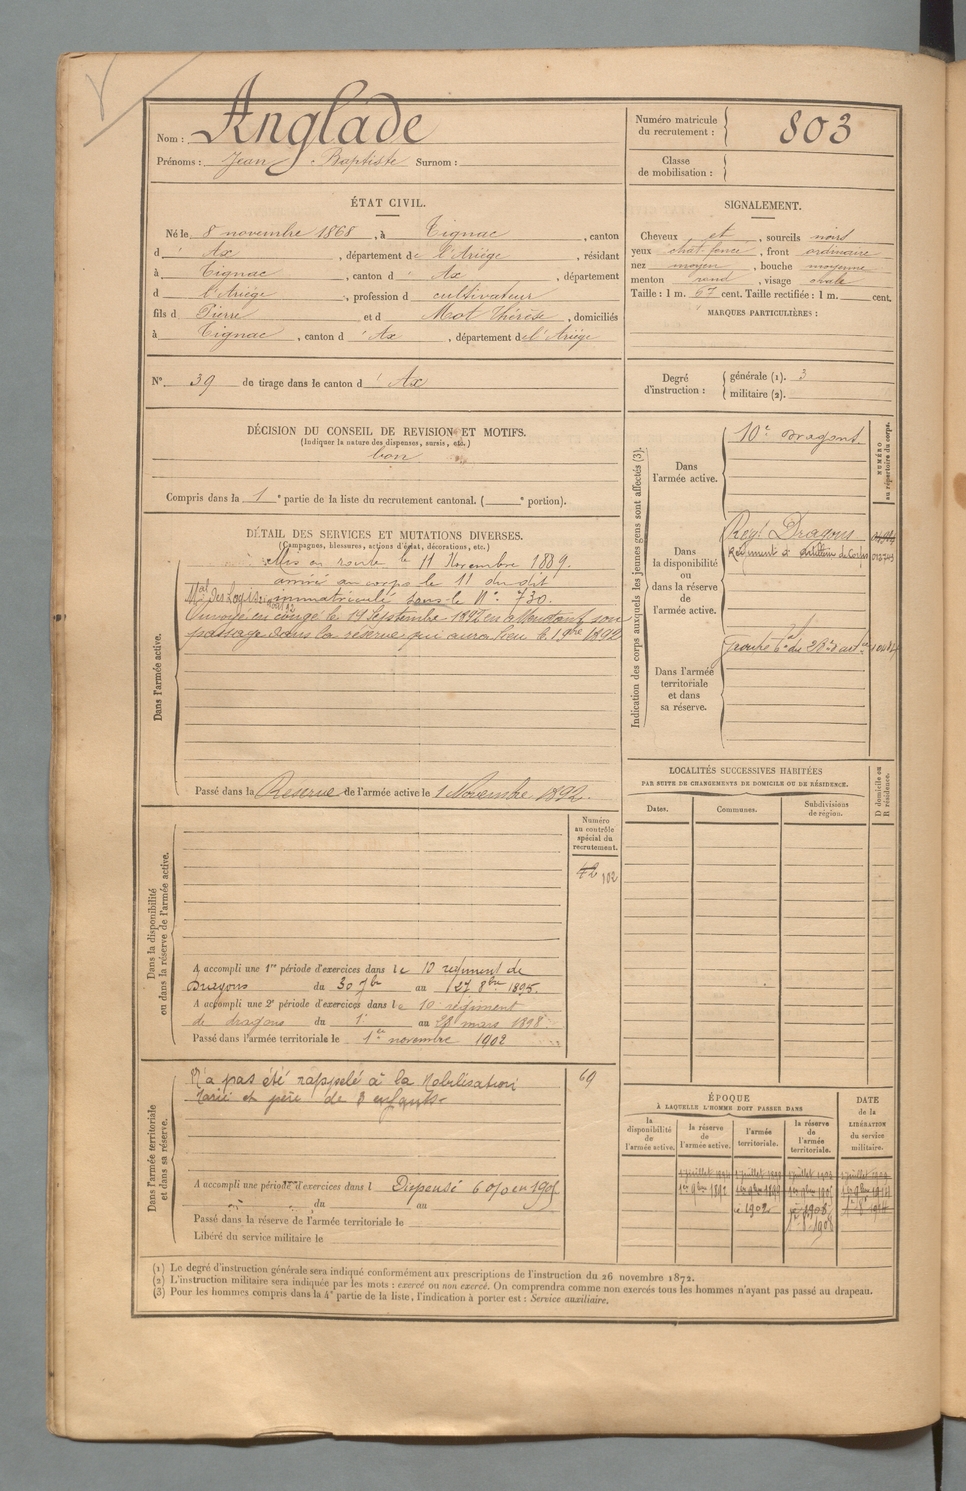 Nom : Anglade
Prénoms : Jean Baptiste Surnom :
Numéro matricule du recrutement : 803
Classe de mobilisation :
ÉTAT CIVIL.
Né le 8 novembre 1868, à Tignac, canton
d' Ax, département de l'Ariège, résidant
à Tignac, canton d' Ax, département
d l'Ariège, profession d cultivateur
fils d Pierre et d Mot Thérèse, domiciliés
à Tignac, canton d' Ax, département de l'Ariège
N° 39 de tirage dans le canton d' Ax
SIGNALEMENT.
Cheveux et, sourcils noirs
yeux chat. foncé, front ordinaire
nez moyen, bouche moyenne
menton rond, visage ovale
Taille : 1 m. 67 cent. Taille rectifiée : 1 m. cent.
MARQUES PARTICULIÈRES :
Degré d'instruction : générale (1). 3
militaire (2).
DÉCISION DU CONSEIL DE REVISION ET MOTIFS.
(Indiquer la nature des dispenses, sursis, etc.)
bon
Compris dans la 1e partie de la liste du recrutement cantonal. ( e portion).
DÉTAIL DES SERVICES ET MUTATIONS DIVERSES.
(Campagnes, blessures, actions d'éclat, décorations, etc.)
Dans l'armée active.
Mis en route le 11 Novembre 1889.
arrivé au corps le 11 du dit
immatriculé sous le N° 730.
Mal des Logis
Envoyé en congé le 19 Septembre 1892 en attendant son
passage dans la réserve qui aura lieu le 1 9bre 1892
Passé dans la Réserve de l'armée active le 1 Novembre 1892.
Indication des corps auxquels les jeunes gens sont affectés (3).
NUMÉRO au répertoire du corps.
Dans l'armée active.
10e Dragons.
Dans la disponibilité ou dans la réserve de l'armée active.
Regt Dragons
Dans l'armée territoriale et dans sa réserve.
LOCALITÉS SUCCESSIVES HABITÉES
PAR SUITE DE CHANGEMENTS DE DOMICILE OU DE RÉSIDENCE.
Dates. Communes. Subdivisions de région. D domicile ou R résidence.
Dans la disponibilité ou dans la réserve de l'armée active.
Numéro au contrôle spécial du recrutement.
102
A accompli une 1re période d'exercices dans le 10 régiment de
Dragons du 30 7bre au 27 8bre 1895.
A accompli une 2e période d'exercices dans le 10e régiment
de dragons du 1er au 28 mars 1898
Passé dans l'armée territoriale le 1er novembre 1902
Dans l'armée territoriale et dans sa réserve.
N'a pas été rappelé à la Mobilisation
Marié et père de 3 enfants.
69
A accompli une période d'exercices dans l Dispensé 6 0/0 en 190
du au
Passé dans la réserve de l'armée territoriale le
Libéré du service militaire le
ÉPOQUE
À LAQUELLE L'HOMME DOIT PASSER DANS
la disponibilité de l'armée active. la réserve de l'armée active. l'armée territoriale. la réserve de l'armée territoriale.
DATE de la LIBÉRATION du service militaire.
1er 9bre 1892
1902
1908
(1) Le degré d'instruction générale sera indiqué conformément aux prescriptions de l'instruction du 26 novembre 1872.
(2) L'instruction militaire sera indiquée par les mots : exercé ou non exercé. On comprendra comme non exercés tous les hommes n'ayant pas passé au drapeau.
(3) Pour les hommes compris dans la 4e partie de la liste, l'indication à porter est : Service auxiliaire.